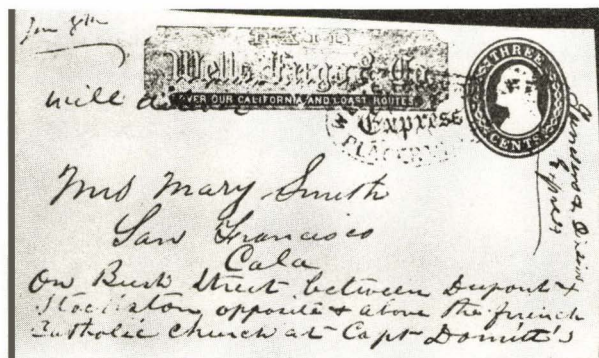 Wells, Fargo & Co.
OVER OUR CALIFORNIA AND COAST ROUTES.
THREE
CENTS
will
Express
Mrs Mary Smith
San Francisco
Cala
On Bush Street between Dupont &
Stockston opposite & above the french
Catholic Church at Capt